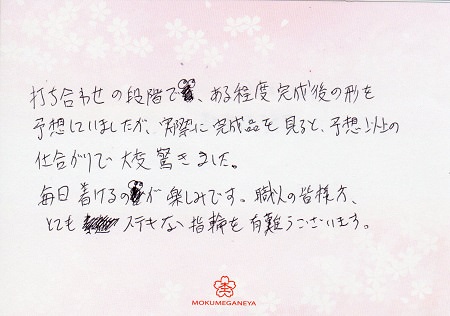 打ち合わせの段階で、ある程度完成後の形を
予想していましたが、実際に完成品を見ると、予想以上の
仕合がりで大変驚きました。
毎日着けるのが楽しみです。職人の皆様方、
とても ステキな指輪を有難うございます。
MOKUMEGANEYA